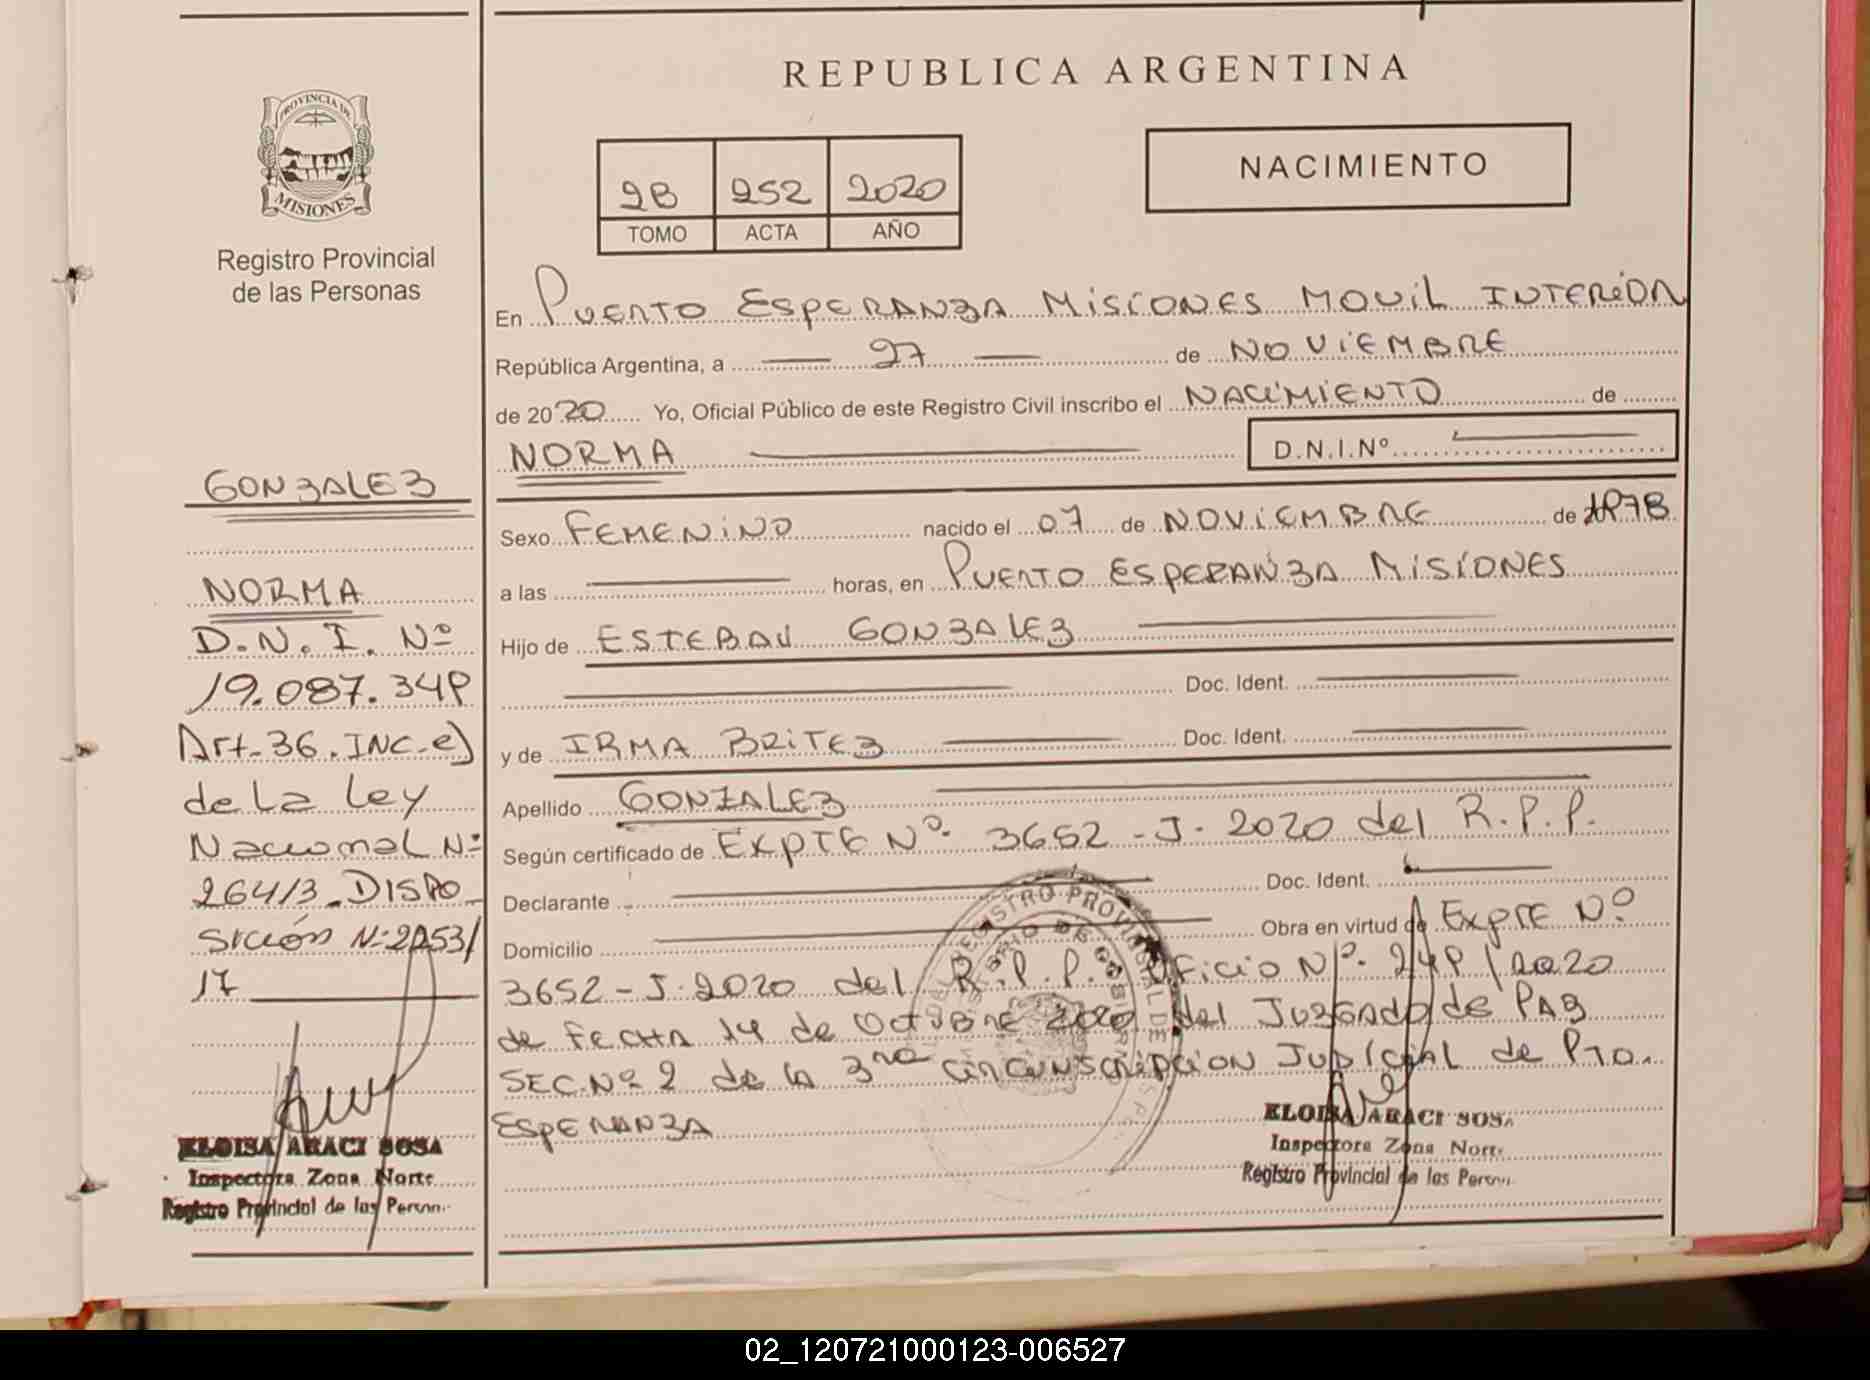 REPUBLICA ARGENTINA
PROVINCIA DE
MISIONES
Registro Provincial
de las Personas
2B 252 2020
TOMO ACTA AÑO
NACIMIENTO
En PUERTO ESPERANZA MISIONES MOVIL INTERIOR
República Argentina, a 27 de NOVIEMBRE
de 2020 Yo, Oficial Público de este Registro Civil inscribo el NACIMIENTO de
NORMA D.N.I.Nº
Sexo FEMENINO nacido el 07 de NOVIEMBRE de 1978
a las horas, en PUERTO ESPERANZA MISIONES
Hijo de ESTEBAN GONZALEZ
Doc. Ident.
y de IRMA BRITEZ Doc. Ident.
Apellido GONZALEZ
Según certificado de EXPTE Nº 3652-J-2020 del R.P.P.
Declarante Doc. Ident.
Domicilio Obra en virtud de EXPTE Nº
3652-J-2020 del R.P.P. Oficio Nº 249/2020
de FECHA 14 de OCTUBRE 2020 del JUZGADO de PAZ
SEC.Nº 2 de la 3ra CIRCUNSCRIPCION JUDICIAL de PTO.
ESPERANZA
GONZALEZ
NORMA
D.N.I. Nº
19.087.349
Art-36.INC-e)
de La Ley
Nacional Nº
26413-DISPO
SICIÓN Nº 2053/
17
ELOISA ARACI SOSA
Inspectora Zona Norte
Registro Provincial de las Person.
ELOISA ARACI SOSA
Inspectora Zona Norte
Registro Provincial de las Person.
02_120721000123-006527